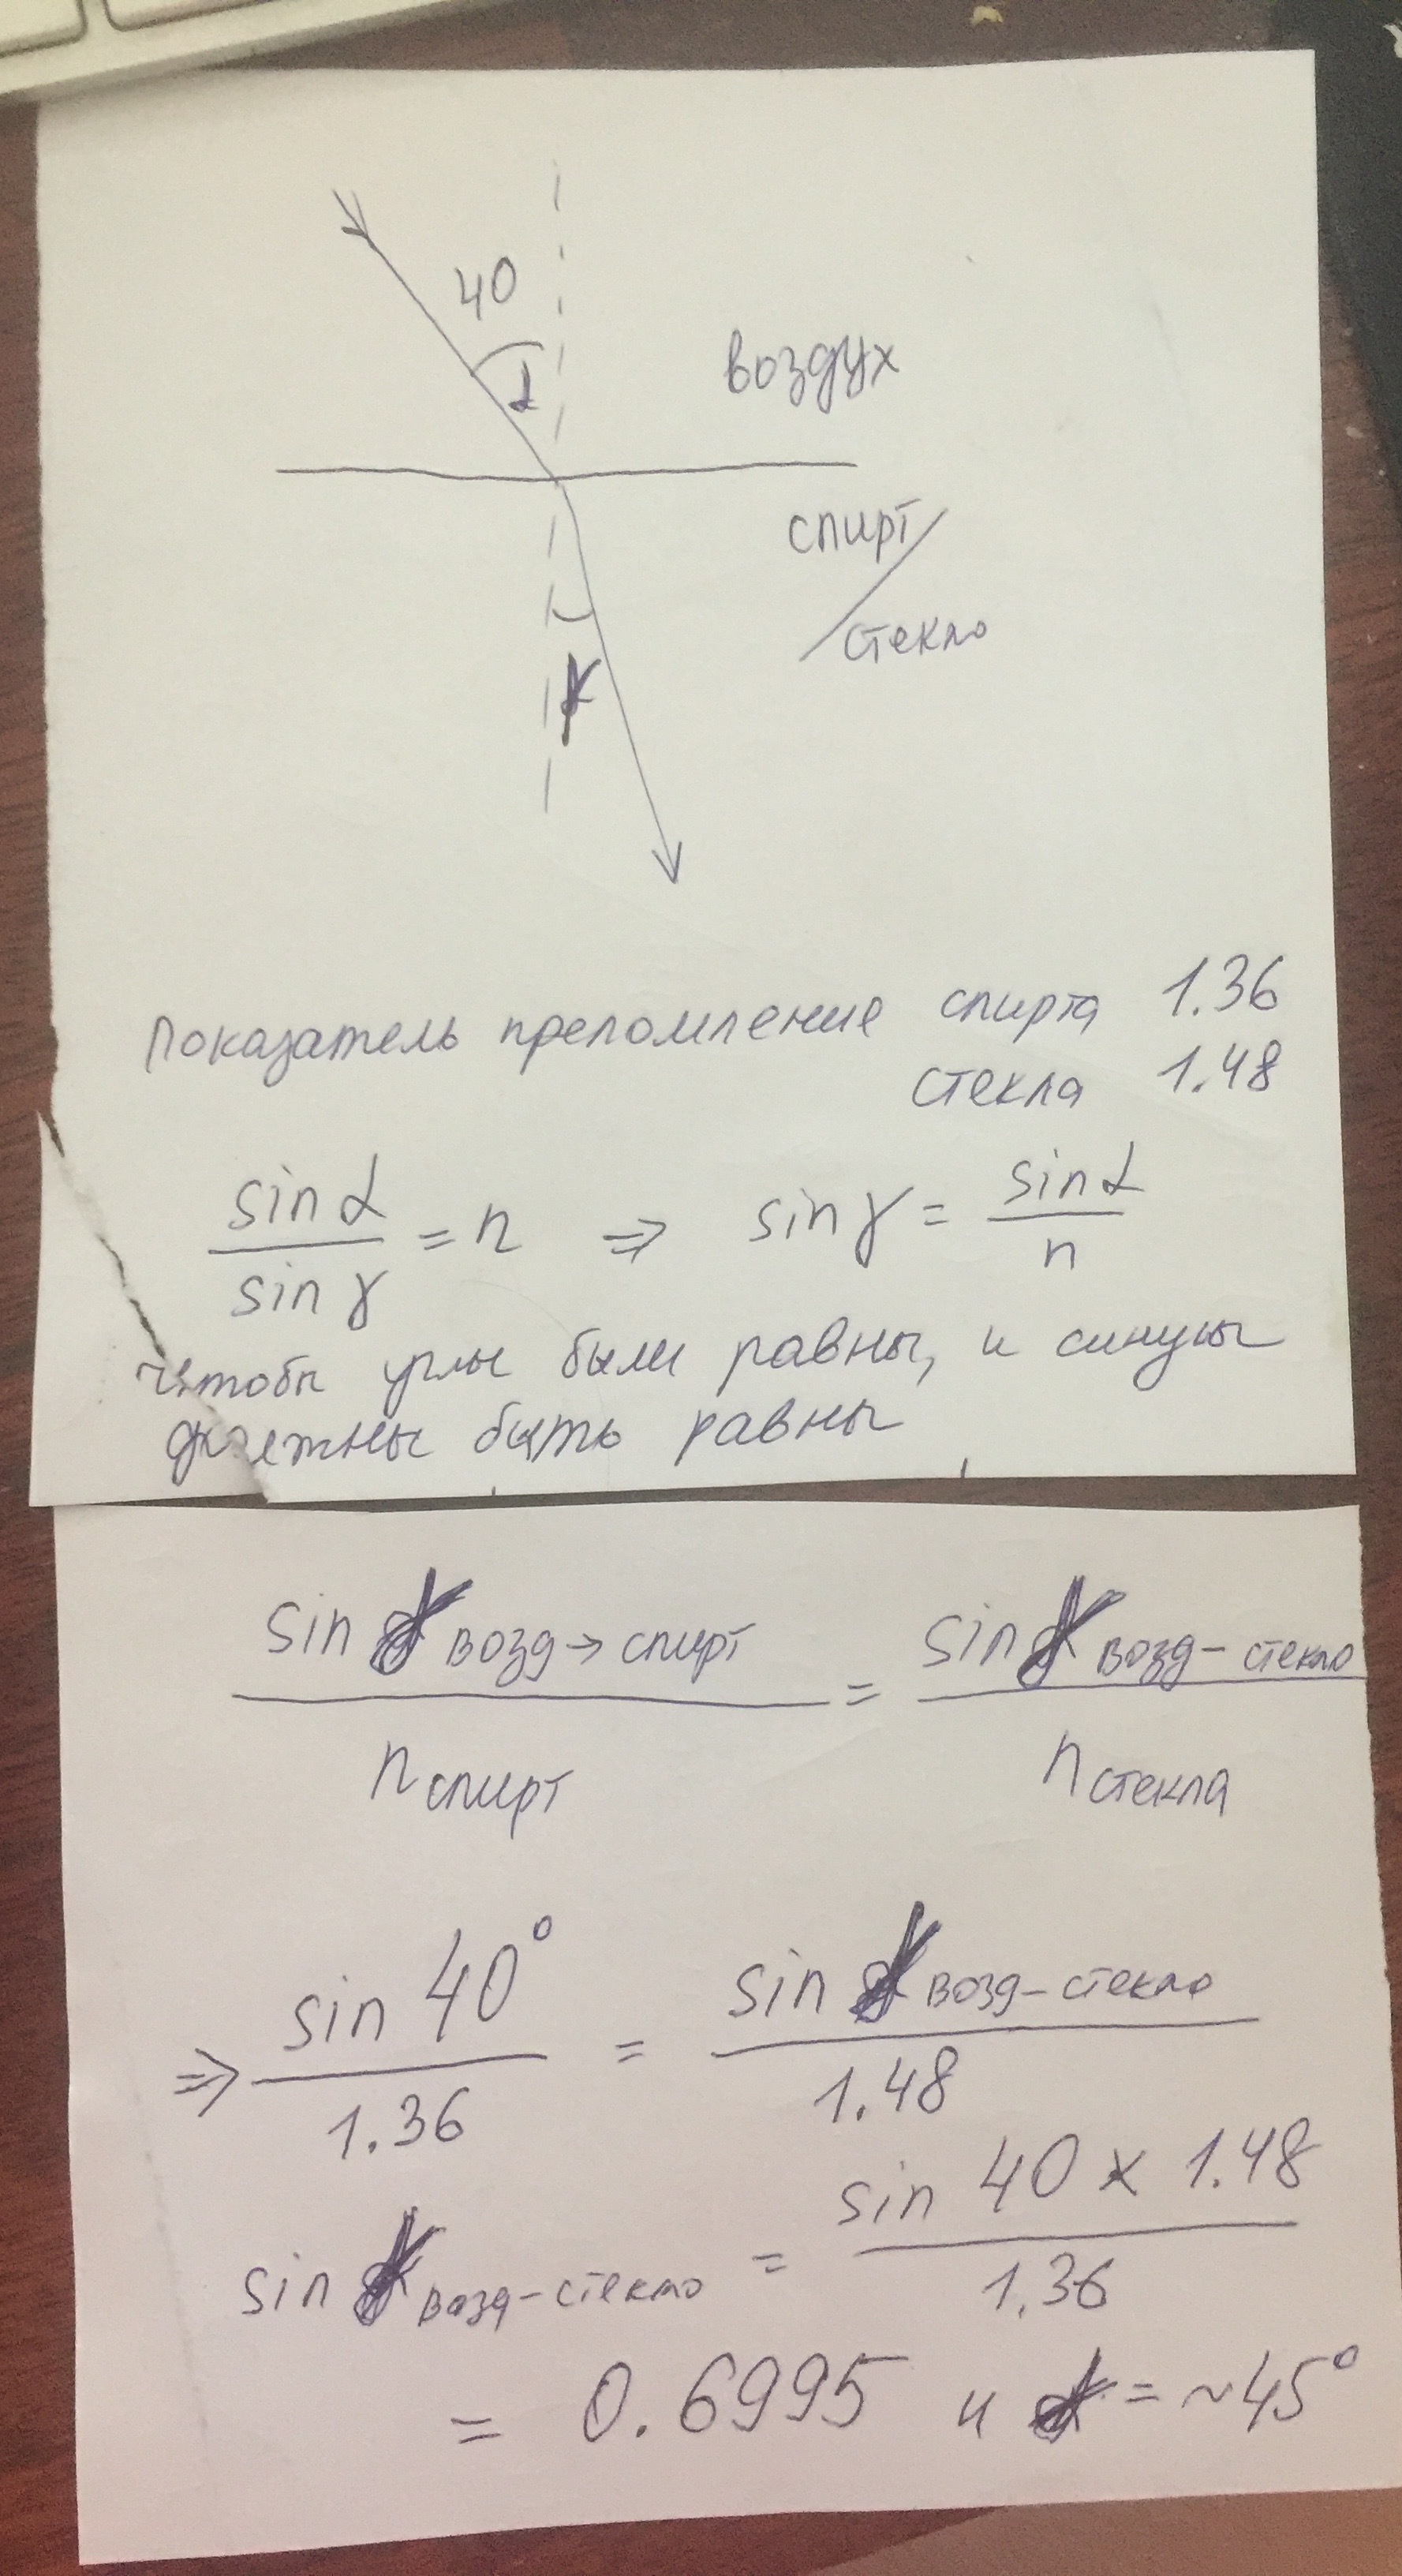 40
α
воздух
спирт/
стекло
γ
Показатель преломление спирта 1.36
стекла 1.48
sin α / sin γ = n ⇒ sin γ = sin α / n
Чтобы углы были равны, и синусы
должны быть равны
sin α возд→спирт / n спирт = sin α возд-стекло / n стекла
⇒ sin 40° / 1.36 = sin α возд-стекло / 1.48
sin α возд-стекло = sin 40 x 1.48 / 1.36
= 0.6995 и α = ~45°